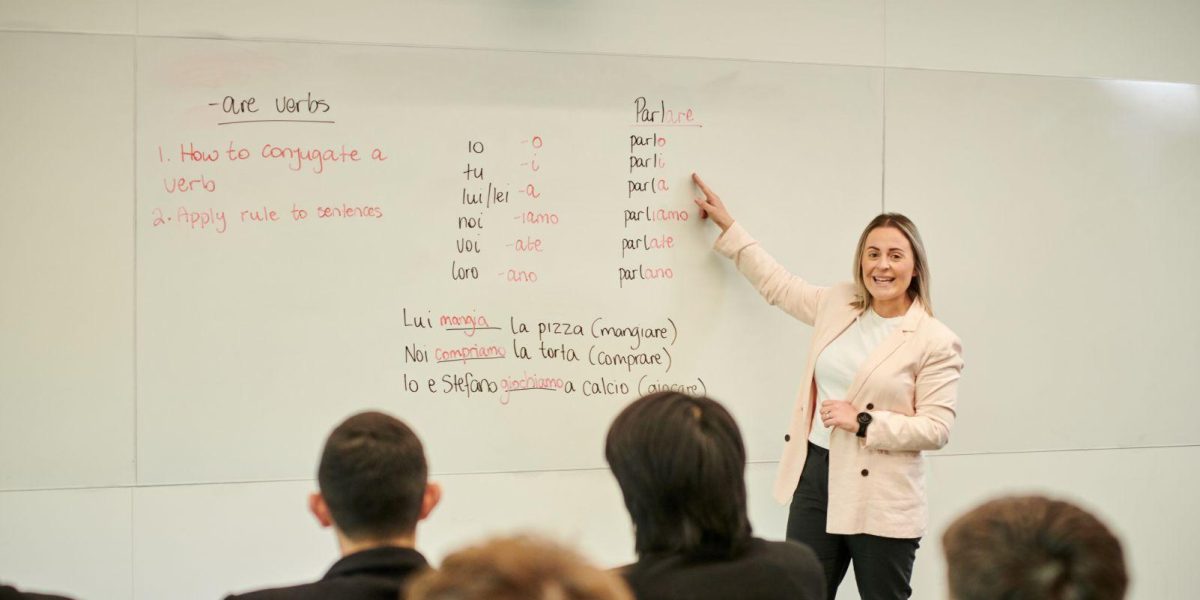 -are verbs
1. How to conjugate a
verb
2. Apply rule to sentences
io -o
tu -i
lui/lei -a
noi -iamo
voi -ate
loro -ano
Parlare
parlo
parli
parla
parliamo
parlate
parlano
Lui mangia la pizza (mangiare)
Noi compriamo la torta (comprare)
Io e Stefano giochiamo a calcio (giocare)